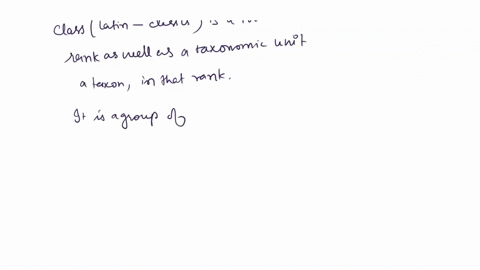 class (Latin - classis) is a
rank as well as a taxonomic unit
a taxon, in that rank.
It is a group of